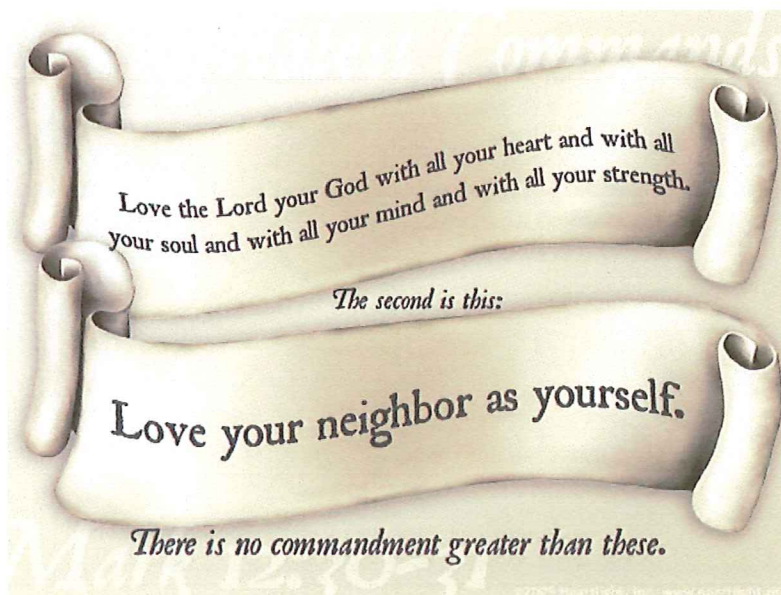 Greatest Commands
Love the Lord your God with all your heart and with all
your soul and with all your mind and with all your strength.
The second is this:
Love your neighbor as yourself.
There is no commandment greater than these.
Mark 12:30-31